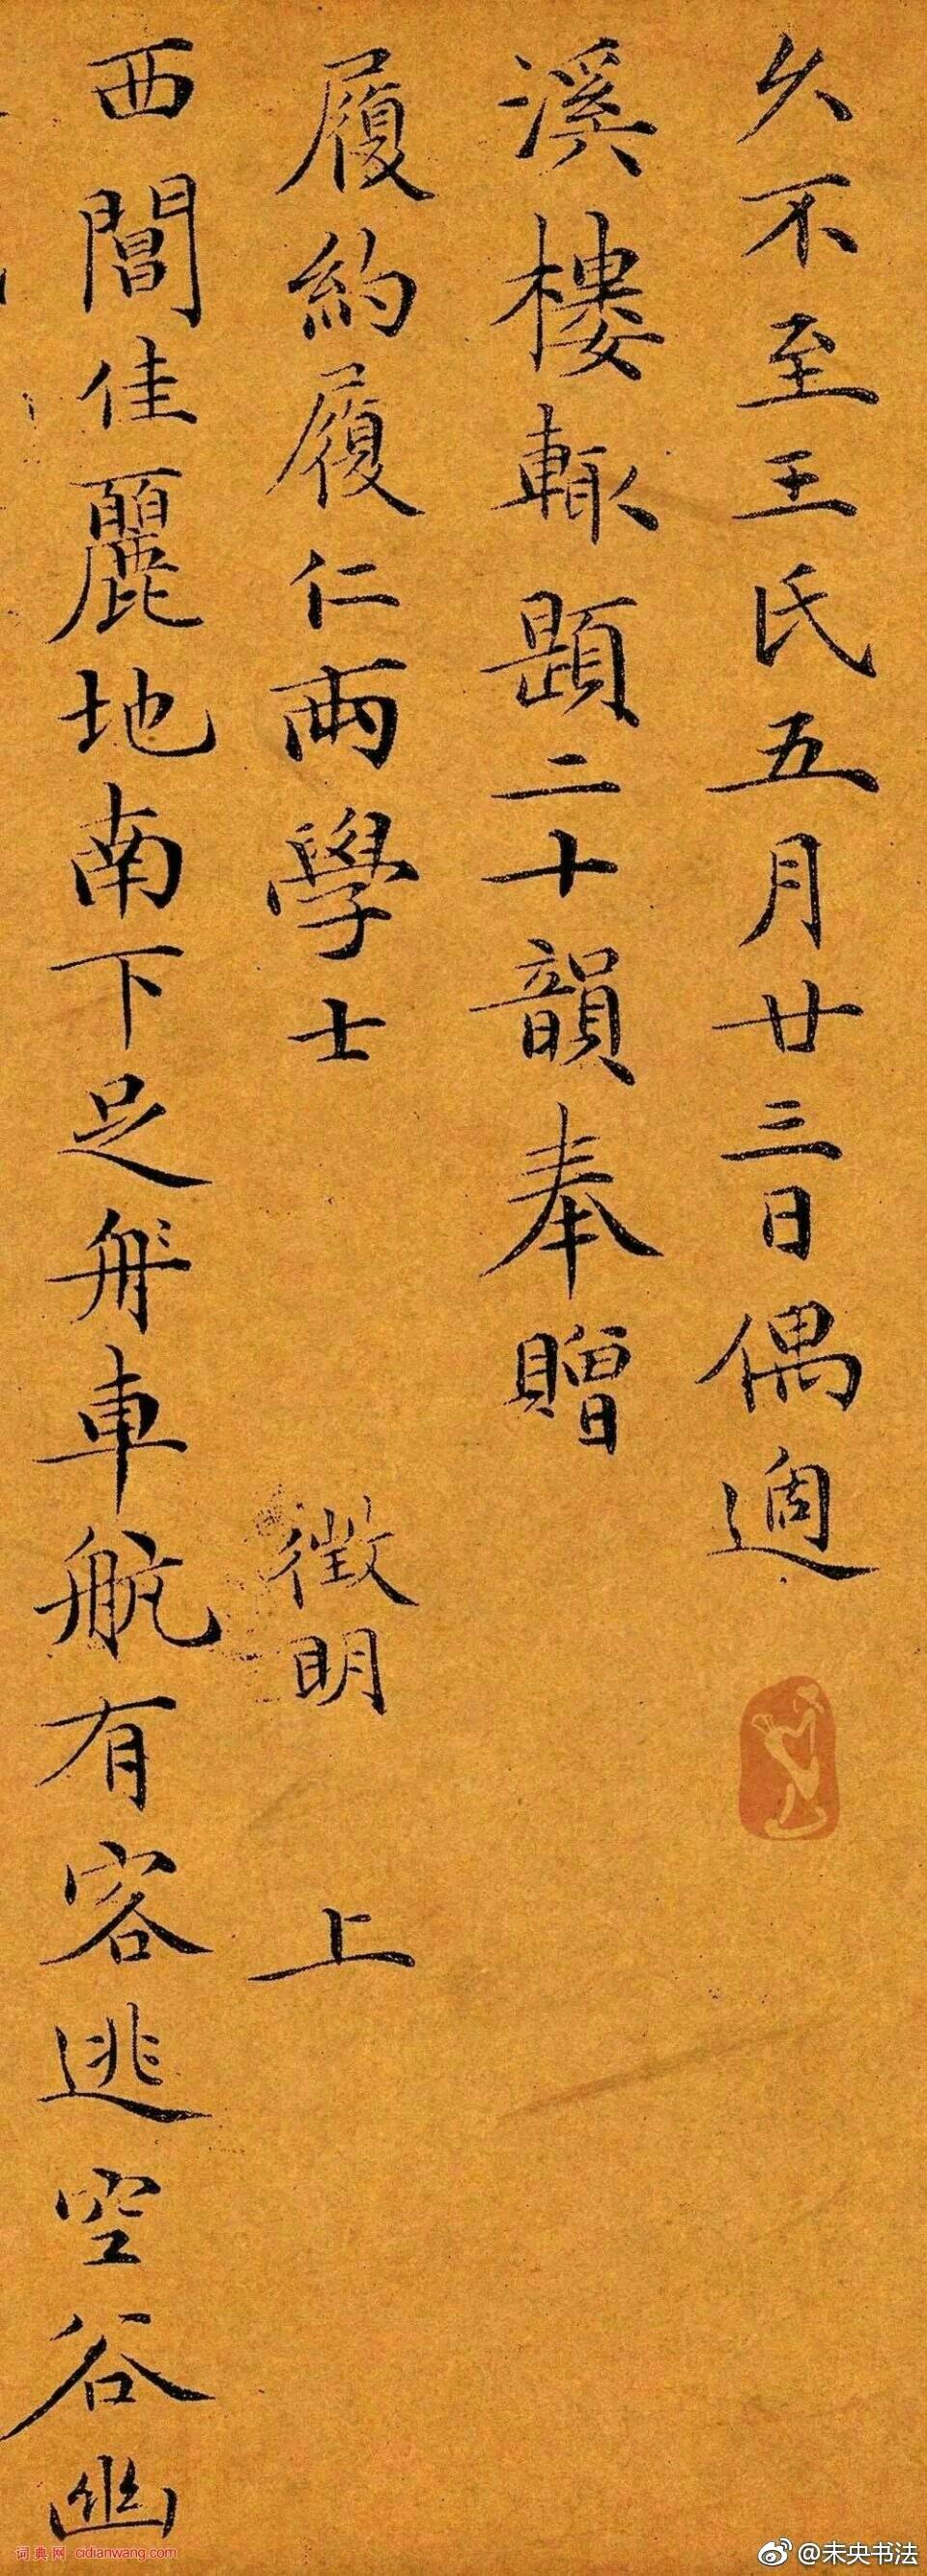 久不至王氏五月廿三日偶過
溪樓輒題二十韻奉贈
履約履仁兩學士 徵明 上
西閶佳麗地南下足舟車航有客逃空谷幽
词典网 cidianwang.com
@未央书法